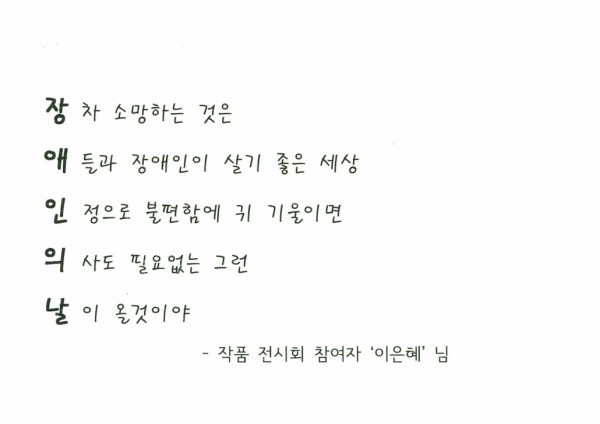 장차 소망하는 것은
애들과 장애인이 살기 좋은 세상
인정으로 불편함에 귀 기울이면
의사도 필요없는 그런
날이 올것이야
- 작품 전시회 참여자 ‘이은혜’ 님